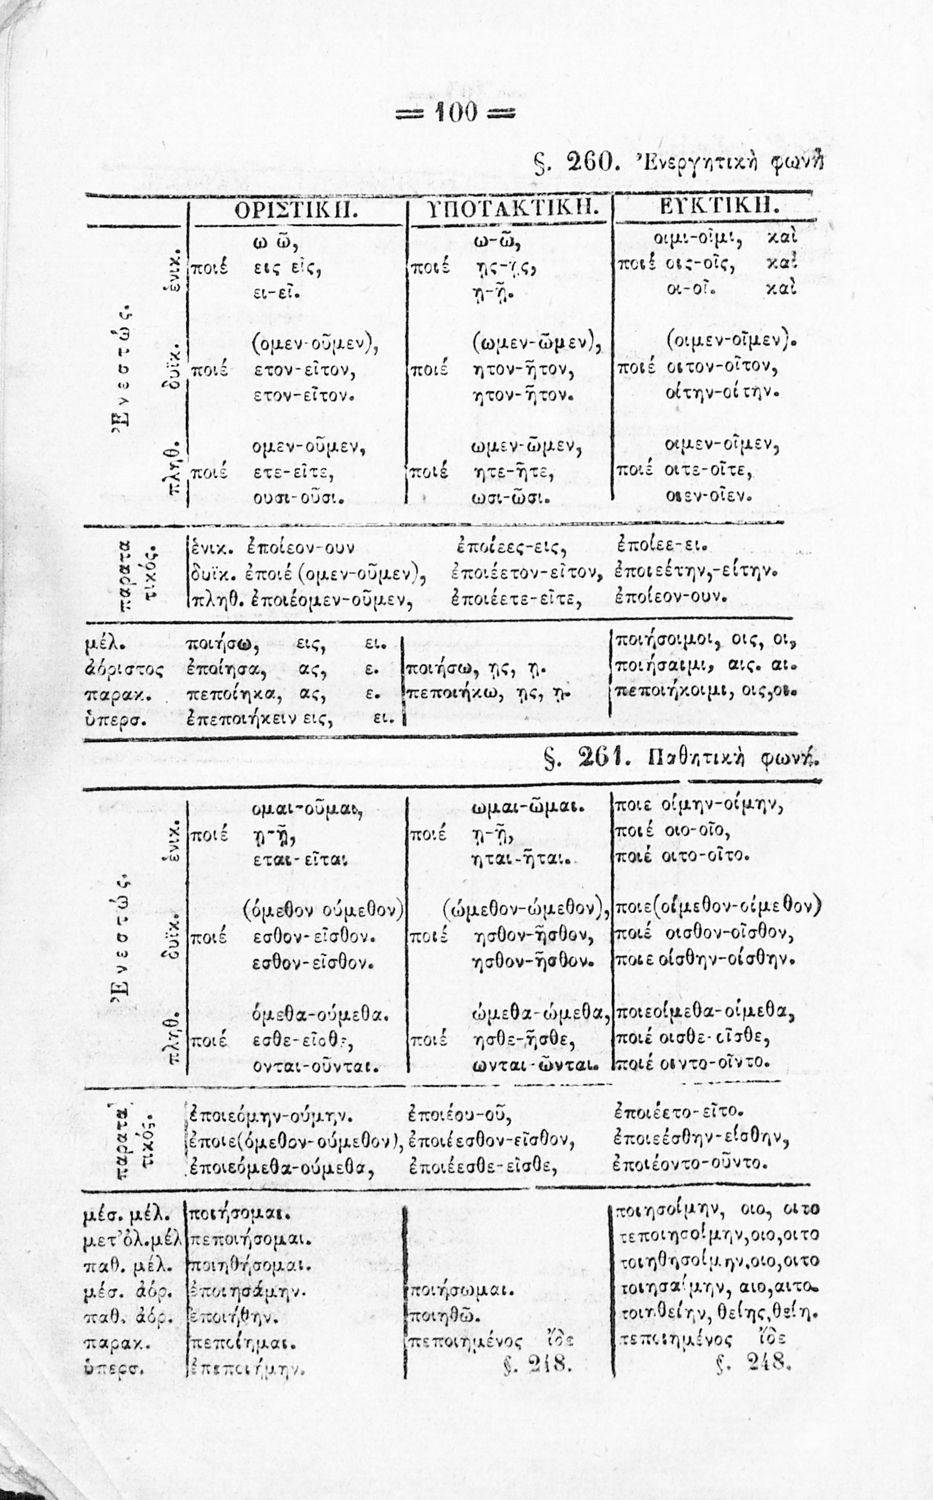 = 100 =
§. 260. Ἐνεργητικὴ φωνὴ
ΟΡΙΣΤΙΚΗ. ΥΠΟΤΑΚΤΙΚΗ. ΕΥΚΤΙΚΗ.
Ἐνεστώς.
ἑνικ.
ω ῶ, ω-ῶ, οιμι-οῖμι, καὶ
ποιέ εις εῖς, ποιέ ῃς-ῇς, ποιέ οις-οῖς, καὶ
ει-εῖ. ῃ-ῇ. οι-οῖ. καὶ
δυϊκ.
(ομεν-οῦμεν), (ωμεν-ῶμεν), (οιμεν-οῖμεν).
ποιέ ετον-εῖτον, ποιέ ητον-ῆτον, ποιέ οιτον-οῖτον,
ετον-εῖτον. ητον-ῆτον. οίτην-οίτην.
πληθ.
ομεν-οῦμεν, ωμεν-ῶμεν, οιμεν-οῖμεν,
ποιέ ετε-εῖτε, ποιέ ητε-ῆτε, ποιέ οιτε-οῖτε,
ουσι-οῦσι. ωσι-ῶσι. οιεν-οῖεν.
παρατα
τικός.
ἑνικ. ἐποίεον-ουν ἐποίεες-εις, ἐποίεε-ει.
δυϊκ. ἐποιέ (ομεν-οῦμεν), ἐποιέετον-εῖτον, ἐποιεέτην,-είτην.
πληθ. ἐποιέομεν-οῦμεν, ἐποιέετε-εῖτε, ἐποίεον-ουν.
μέλ. ποιήσω, εις, ει. ποιήσοιμοι, οις, οι,
ἀόριστος ἐποίησα, ας, ε. ποιήσω, ῃς, ῃ. ποιήσαιμι, αις. αι.
παρακ. πεποίηκα, ας, ε. πεποιήκω, ῃς, ῃ. πεποιήκοιμι, οις,οι.
ὑπερσ. ἐπεποιήκειν εις, ει.
§. 261. Παθητικὴ φωνή.
Ἐνεστώς.
ἑνικ.
ομαι-οῦμαι, ωμαι-ῶμαι. ποιε οίμην-οίμην,
ποιέ ῃ-ῇ, ποιέ ῃ-ῇ, ποιέ οιο-οῖο,
εται-εῖται ηται-ῆται. ποιέ οιτο-οῖτο.
δυϊκ.
(όμεθον ούμεθον) (ώμεθον-ώμεθον), ποιε(οίμεθον-οίμεθον)
ποιέ εσθον-εῖσθον. ποιέ ησθον-ῆσθον, ποιέ οισθον-οῖσθον,
εσθον-εῖσθον. ησθον-ῆσθον. ποιε οίσθην-οίσθην.
πληθ.
όμεθα-ούμεθα. ώμεθα-ώμεθα, ποιεοίμεθα-οίμεθα,
ποιέ εσθε-εῖσθε, ποιέ ησθε-ῆσθε, ποιέ οισθε-οῖσθε,
ονται-οῦνται. ωνται-ῶνται. ποιέ οιντο-οῖντο.
παρατα
τικός.
ἐποιεόμην-ούμην. ἐποιέου-οῦ, ἐποιέετο-εῖτο.
ἐποιε(όμεθον-ούμεθον), ἐποιέεσθον-εῖσθον, ἐποιεέσθην-είσθην,
ἐποιεόμεθα-ούμεθα, ἐποιέεσθε-εῖσθε, ἐποιέοντο-οῦντο.
μέσ. μέλ. ποιήσομαι. ποιησοίμην, οιο, οιτο
μετ'ὀλ.μέλ πεποιήσομαι. πεποιησοίμην,οιο,οιτο
παθ. μέλ. ποιηθήσομαι. ποιηθησοίμην,οιο,οιτο
μέσ. ἀόρ. ἐποιησάμην. ποιήσωμαι. ποιησαίμην, αιο,αιτο.
παθ. ἀόρ. ἐποιήθην. ποιηθῶ. ποιηθείην, θείης,θείη.
παρακ. πεποίημαι. πεποιημένος ἴδε πεποιημένος ἴδε
ὑπερσ. ἐπεποιήμην. §. 248. §. 248.